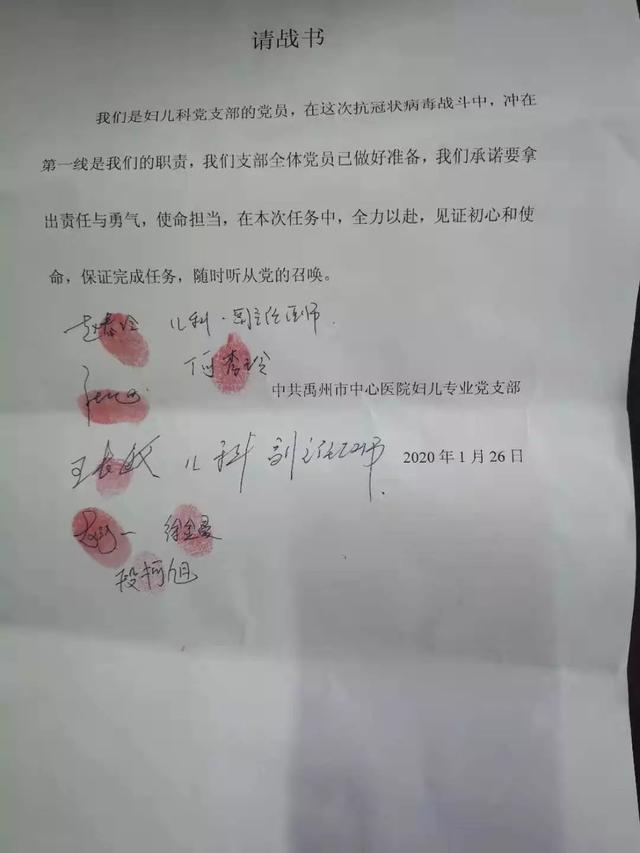 请战书
我们是妇儿科党支部的党员，在这次抗冠状病毒战斗中，冲在
第一线是我们的职责，我们支部全体党员已做好准备，我们承诺要拿
出责任与勇气，使命担当，在本次任务中，全力以赴，见证初心和使
命，保证完成任务，随时听从党的召唤。
赵春玲 儿科·副主任医师
何秀玲
中共禹州市中心医院妇儿专业党支部
王长敏 儿科 副主任医师
2020年1月26日
徐金曼
段柯旭